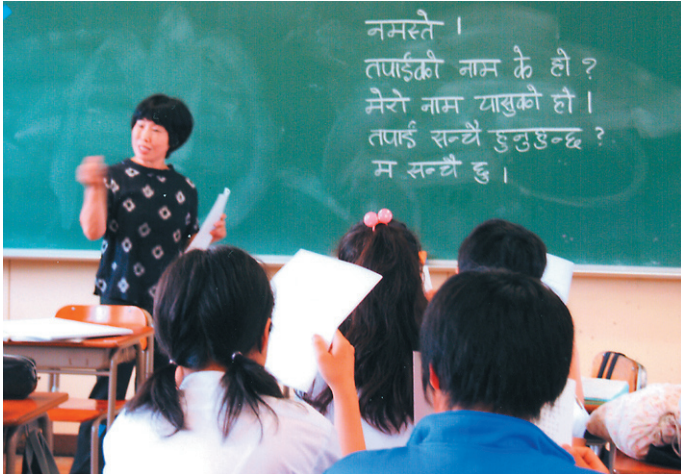 नमस्ते ।
तपाईको नाम के हो ?
मेरो नाम यासुको हो ।
तपाई सन्चै हुनुहुन्छ ?
म सन्चै छु ।